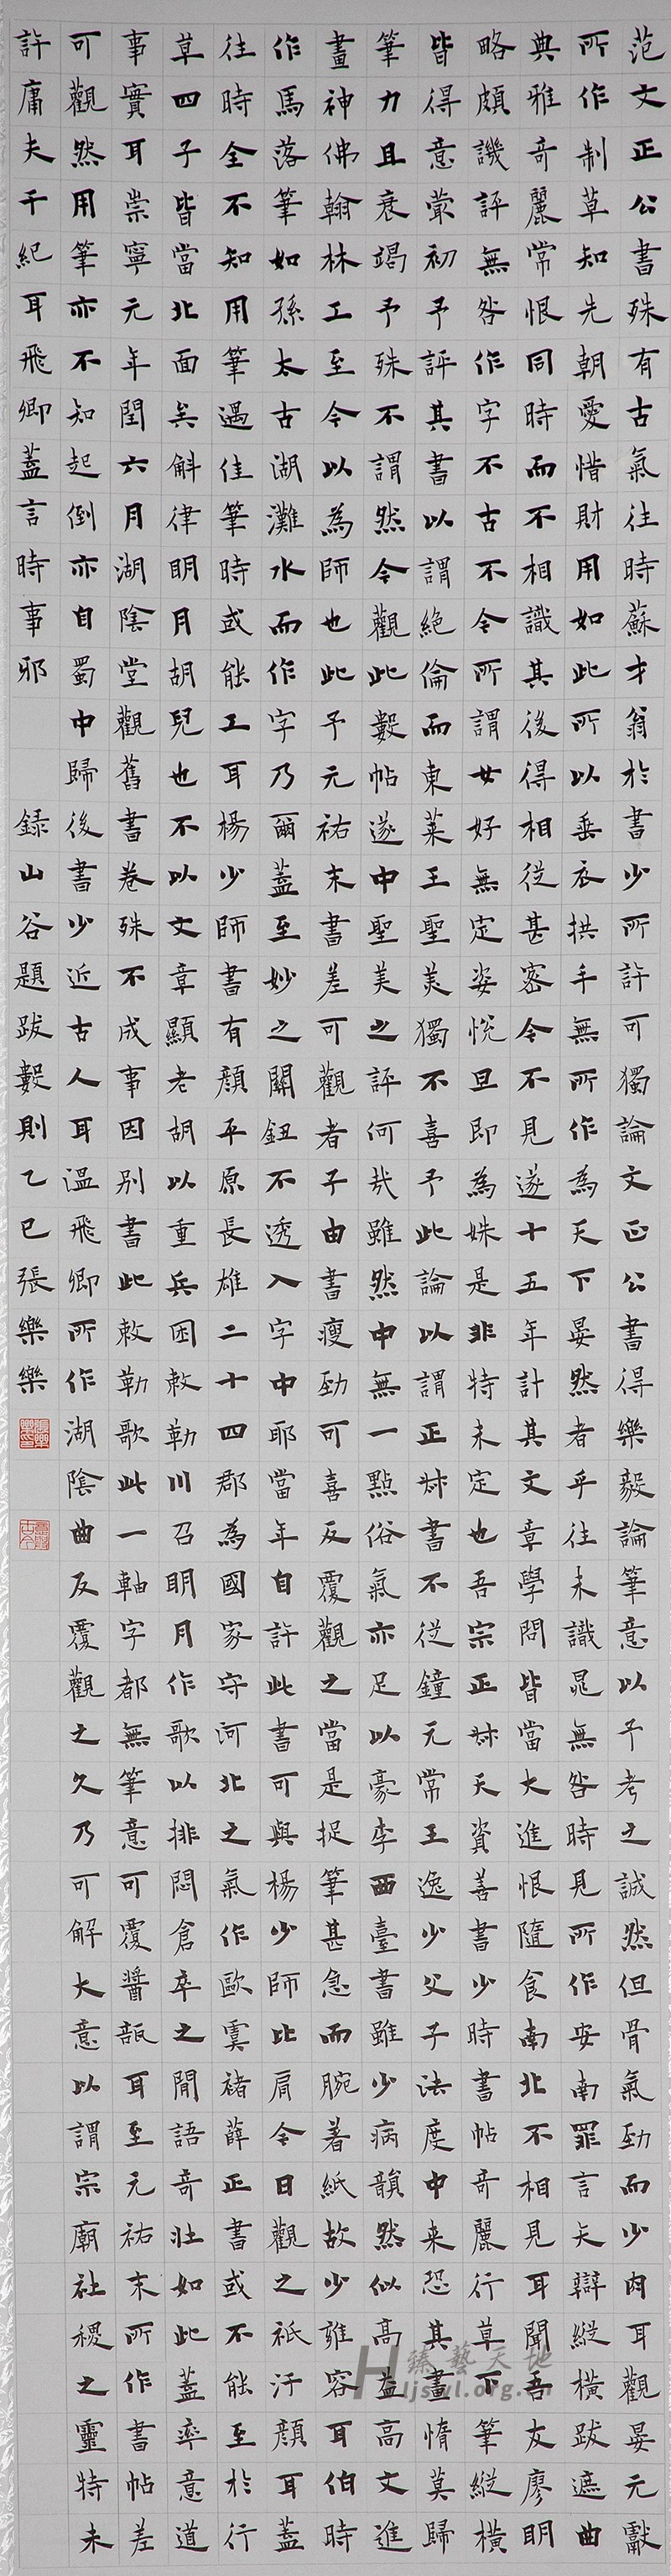 范文正公書殊有古氣往時蘇才翁於書少所許可獨論文正公書得樂毅論筆意以予考之誠然但骨氣勁而少肉耳觀晏元獻
所作制草知先朝愛惜財用如此所以垂衣拱手無所作為天下晏然者乎往未識晁無咎時見所作安南罪言夫辯縱橫跋遮曲
典雅奇麗常恨同時而不相識其後得相從甚密今不見遂十五年計其文章學問皆當大進恨隨食南北不相見耳聞吾友廖明
略頗譏評無咎作字不古不今所謂女好無定姿悅旦即為姝是非特未定也吾宗正叔天資善書少時書帖奇麗行草下筆縱橫
皆得意嘗初予評其書以謂絕倫而東萊王聖美獨不喜予此論以謂正叔書不從鐘元常王逸少父子法度中来恐其畫惰莫歸
筆力且衰竭予殊不謂然今觀此數帖遂中聖美之評何哉雖然中無一點俗氣亦足以豪李西臺書雖少病韻然似高益高文進
畫神佛翰林工至今以為師也此予元祐末書差可觀者子由書瘦勁可喜反覆觀之當是捉筆甚急而腕着紙故少雍容耳伯時
作馬落筆如孫太古湖灘水而作字乃爾蓋至妙之關鈕不透入字中耶當年自許此書可與楊少師比肩今日觀之祇汙顏耳蓋
往時全不知用筆遇佳筆時或能工耳楊少師書有顏平原長雄二十四郡為國家守河北之氣作歐虞褚薛正書或不能至於行
草四子皆當北面矣斛律明月胡兒也不以文章顯老胡以重兵困敕勒川召明月作歌以排悶倉卒之間語奇壯如此蓋率意道
事實耳崇寧元年閏六月湖陰堂觀舊書卷殊不成事因別書此敕勒歌此一軸字都無筆意可覆醬瓿耳至元祐末所作書帖差
可觀然用筆亦不知起倒亦自蜀中歸後書少近古人耳溫飛卿所作湖陰曲反覆觀之久乃可解大意以謂宗廟社稷之靈特未
許庸夫干紀耳飛卿蓋言時事邪 錄山谷題跋數則乙巳張樂樂